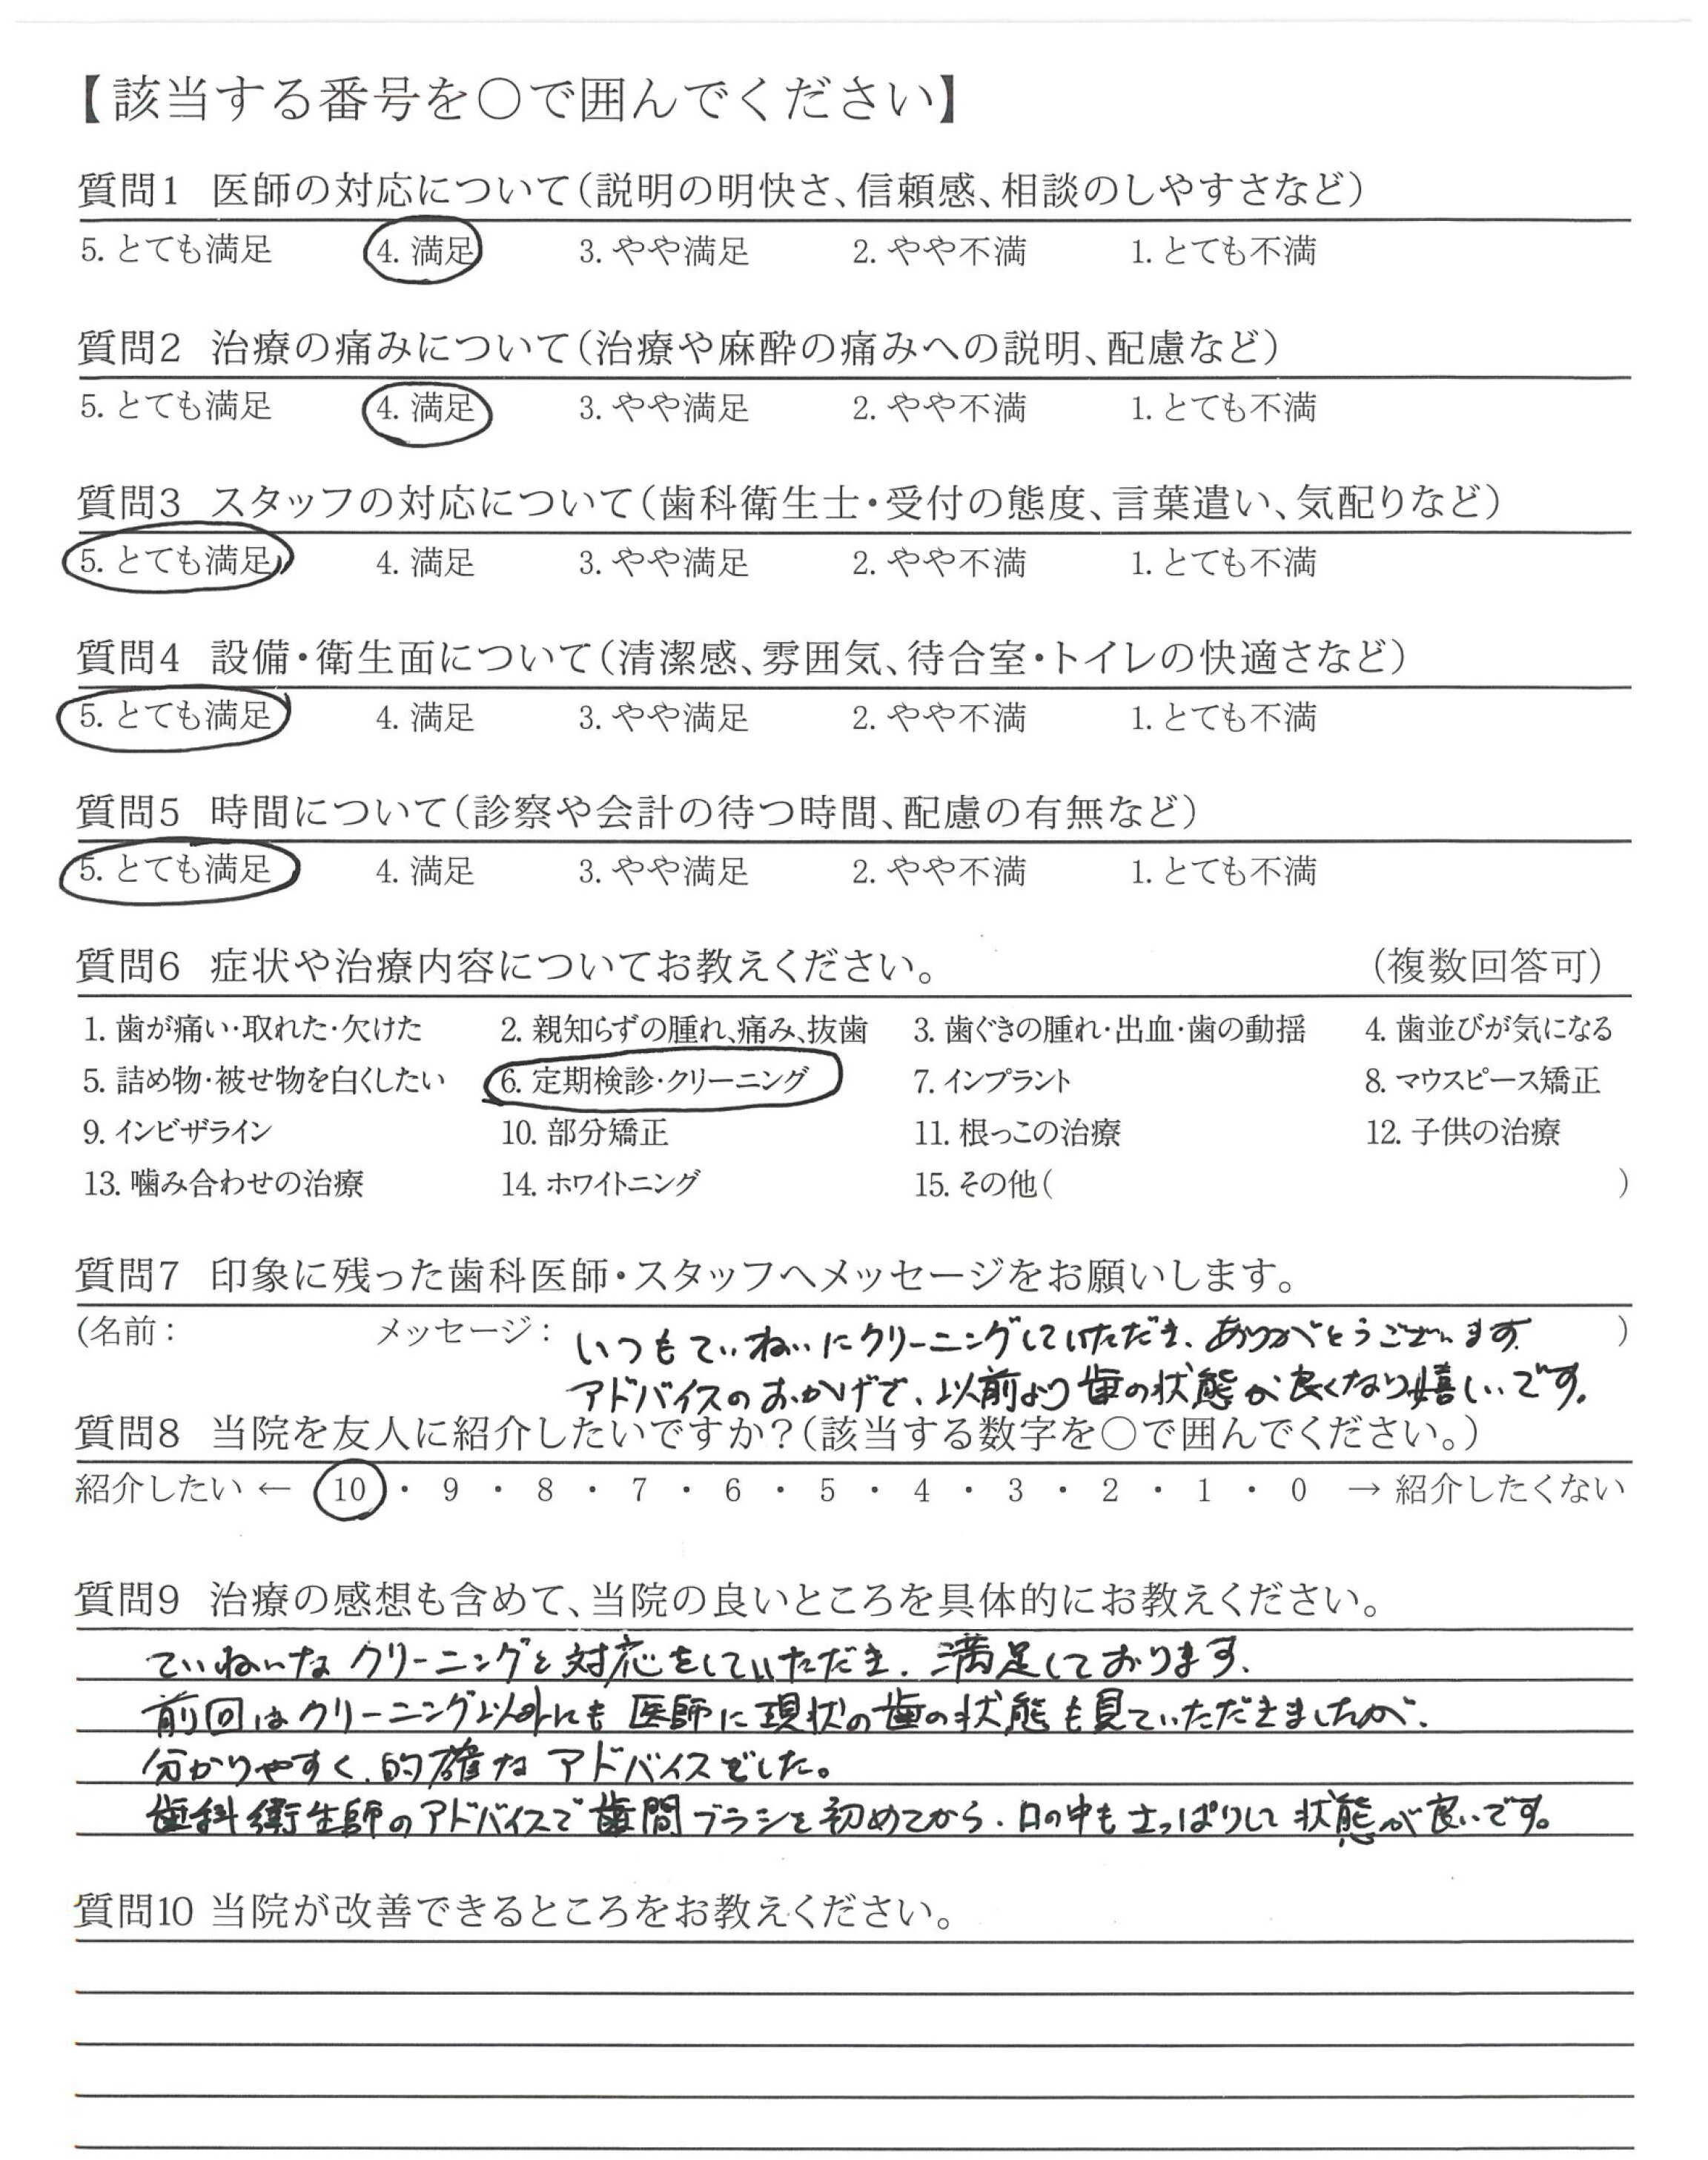 【該当する番号を〇で囲んでください】
質問1 医師の対応について（説明の明快さ、信頼感、相談のしやすさなど）
5. とても満足 4. 満足 3. やや満足 2. やや不満 1. とても不満
質問2 治療の痛みについて（治療や麻酔の痛みへの説明、配慮など）
5. とても満足 4. 満足 3. やや満足 2. やや不満 1. とても不満
質問3 スタッフの対応について（歯科衛生士・受付の態度、言葉遣い、気配りなど）
5. とても満足 4. 満足 3. やや満足 2. やや不満 1. とても不満
質問4 設備・衛生面について（清潔感、雰囲気、待合室・トイレの快適さなど）
5. とても満足 4. 満足 3. やや満足 2. やや不満 1. とても不満
質問5 時間について（診察や会計の待つ時間、配慮の有無など）
5. とても満足 4. 満足 3. やや満足 2. やや不満 1. とても不満
質問6 症状や治療内容についてお教えください。 （複数回答可）
1. 歯が痛い・取れた・欠けた 2. 親知らずの腫れ、痛み、抜歯 3. 歯ぐきの腫れ・出血・歯の動揺 4. 歯並びが気になる
5. 詰め物・被せ物を白くしたい 6. 定期検診・クリーニング 7. インプラント 8. マウスピース矯正
9. インビザライン 10. 部分矯正 11. 根っこの治療 12. 子供の治療
13. 噛み合わせの治療 14. ホワイトニング 15. その他（ ）
質問7 印象に残った歯科医師・スタッフへメッセージをお願いします。
（名前： メッセージ： いつもていねいにクリーニングしていただき、ありがとうございます。 ）
アドバイスのおかげで、以前より歯の状態が良くなり嬉しいです。
質問8 当院を友人に紹介したいですか？（該当する数字を〇で囲んでください。）
紹介したい ← 10 ・ 9 ・ 8 ・ 7 ・ 6 ・ 5 ・ 4 ・ 3 ・ 2 ・ 1 ・ 0 → 紹介したくない
質問9 治療の感想も含めて、当院の良いところを具体的にお教えください。
ていねいなクリーニングと対応をしていただき、満足しております。
前回はクリーニング以外にも医師に現状の歯の状態も見ていただきましたが、
分かりやすく、的確なアドバイスでした。
歯科衛生師のアドバイスで歯間ブラシを初めてから、口の中もさっぱりして状態が良いです。
質問10 当院が改善できるところをお教えください。